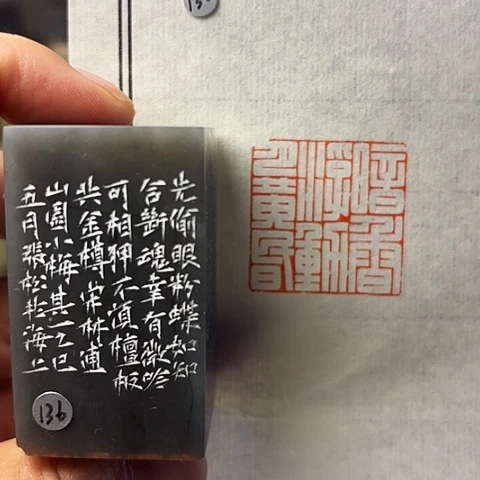 先偷眼粉蝶如知
合斷魂幸有微吟
可相狎不湏檀板
共金樽宋林逋
山園小梅其一乙巳
五月張松扵海上
136
暗香
浮動
月黃昏